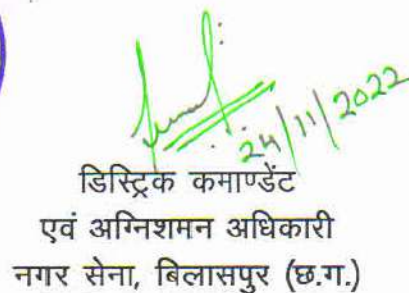 24/11/2022
डिस्ट्रिक कमाण्डेंट
एवं अग्निशमन अधिकारी
नगर सेना, बिलासपुर (छ.ग.)